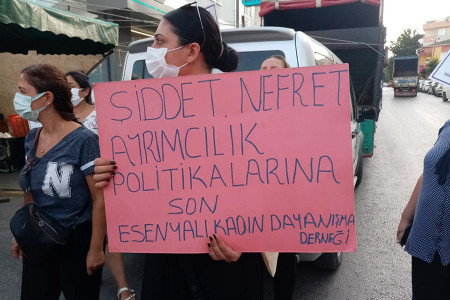 ŞİDDET, NEFRET
AYRIMCILIK
POLİTİKALARINA
SON
ESENYALI KADIN DAYANIŞMA
DERNEĞİ
N